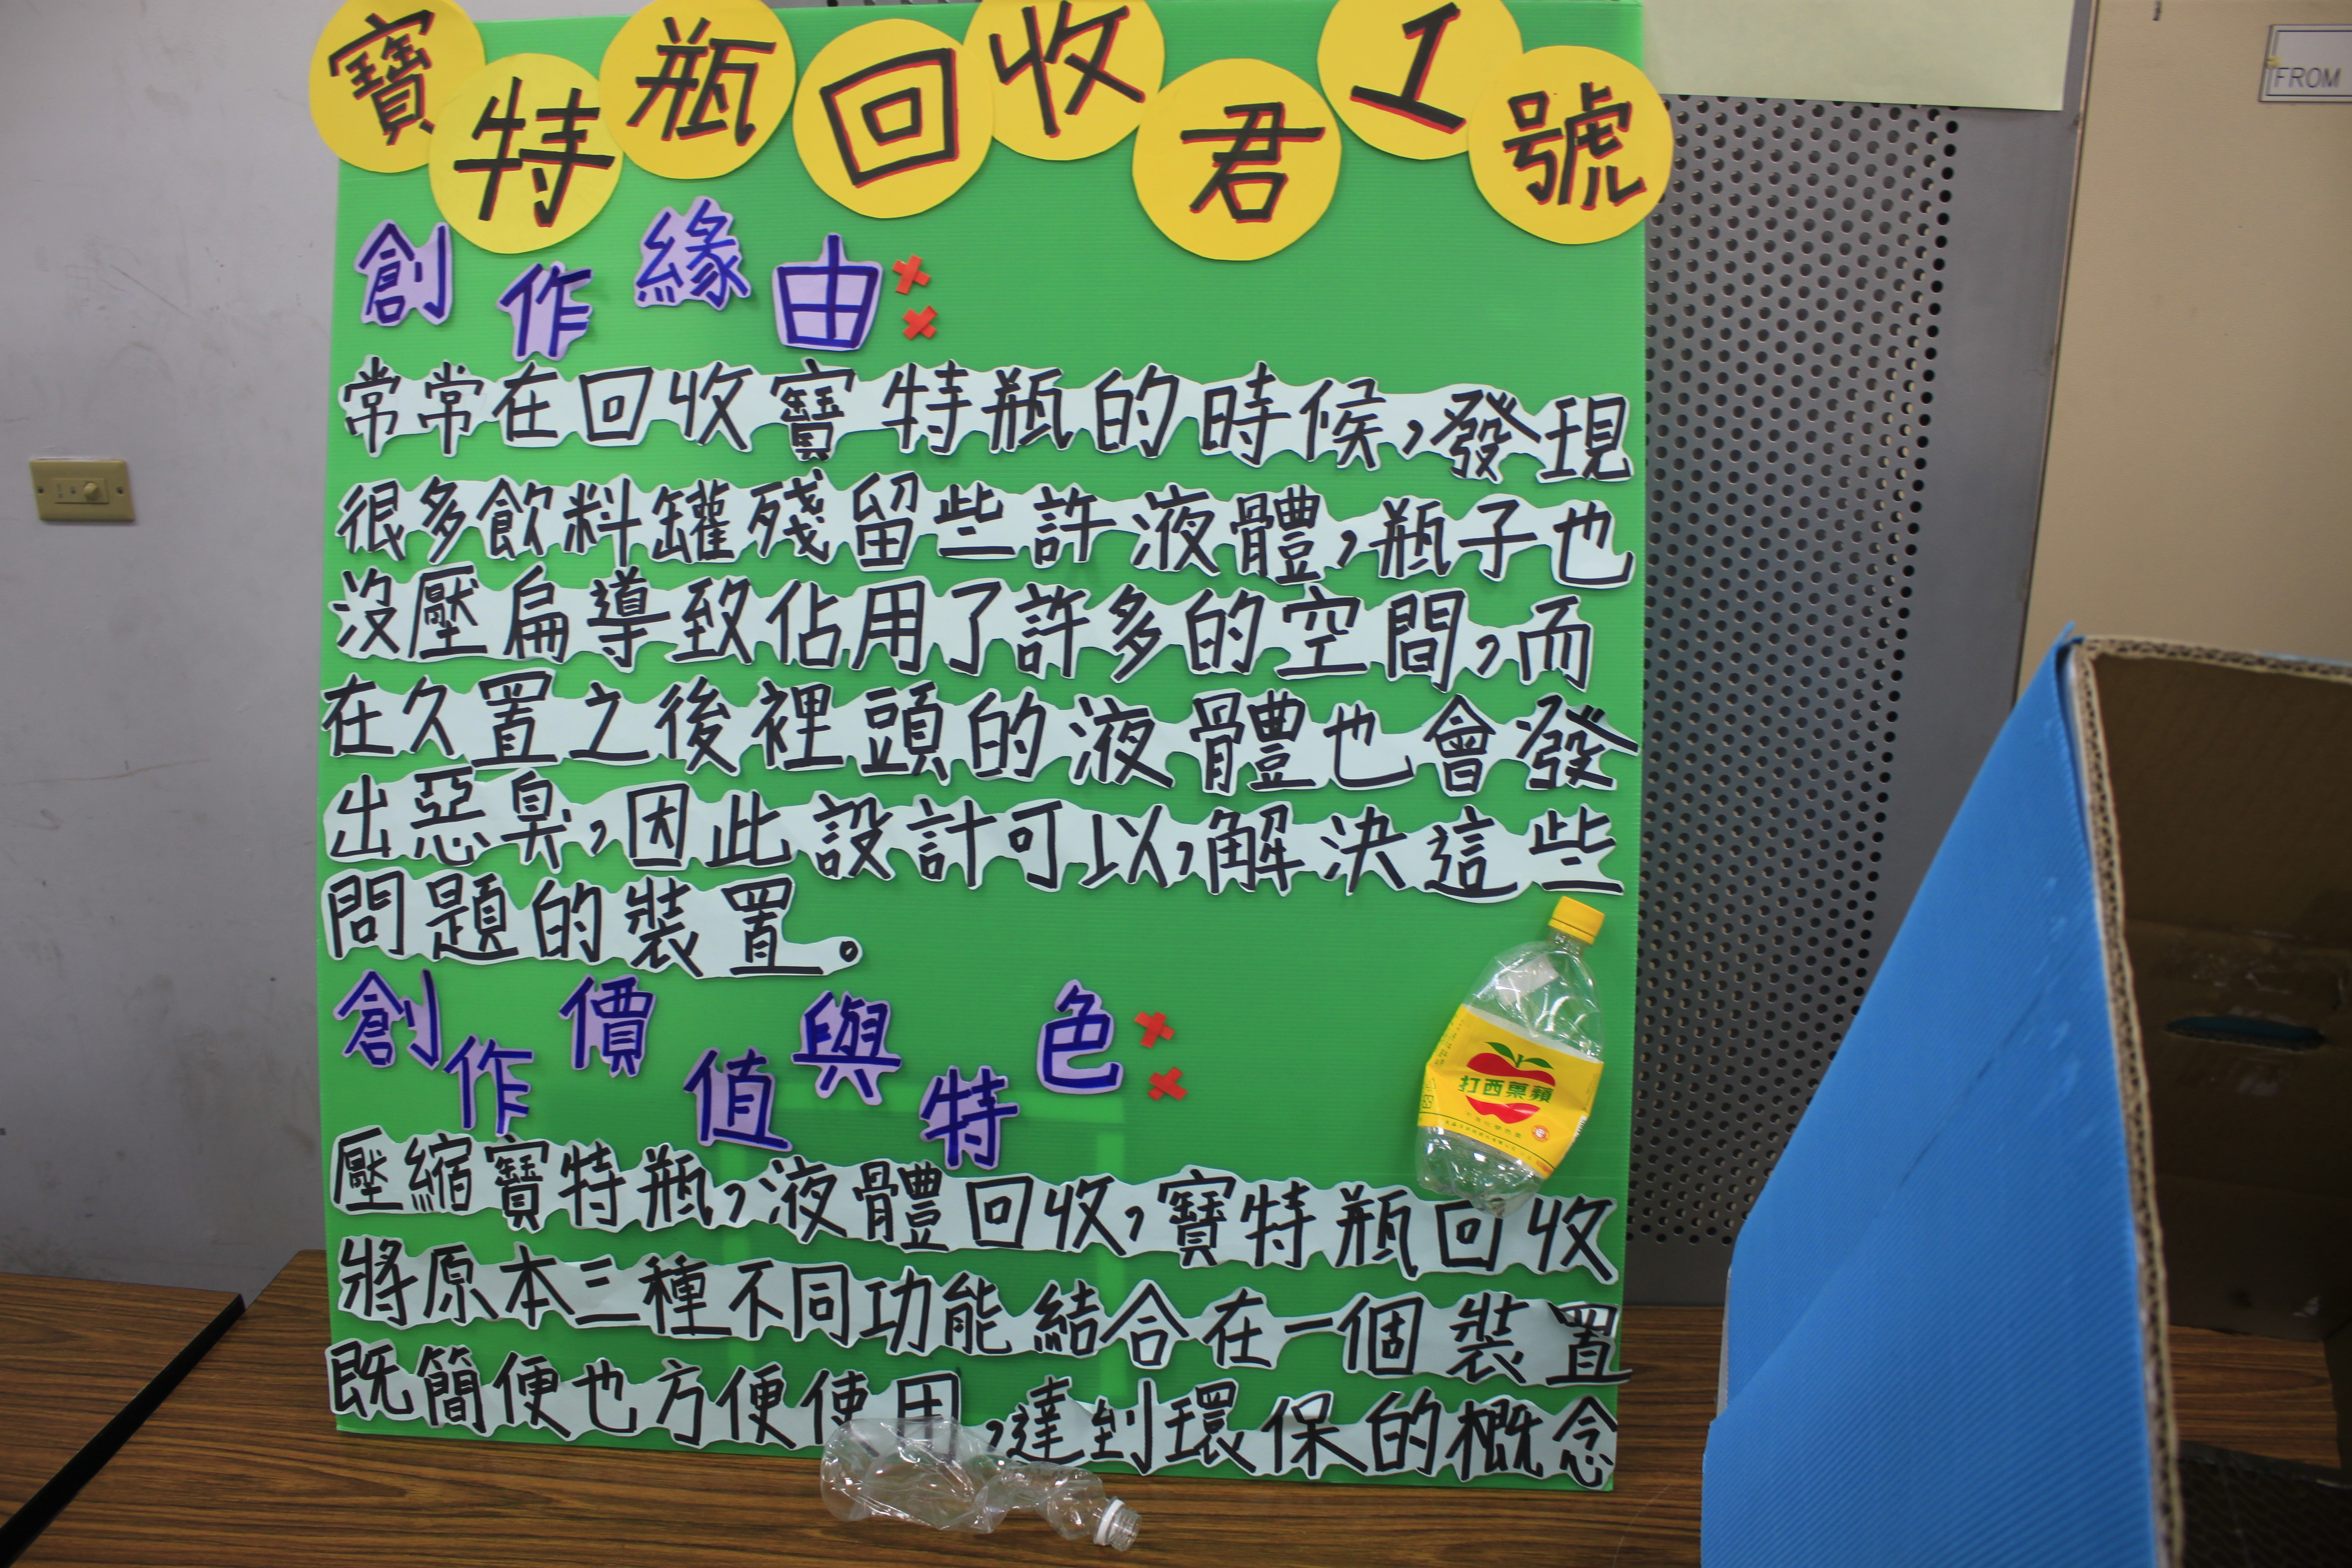 寶特瓶回收君1號
FROM
創作緣由:
常常在回收寶特瓶的時候,發現
很多飲料罐殘留些許液體,瓶子也
沒壓扁導致佔用了許多的空間,而
在久置之後裡頭的液體也會發
出惡臭,因此設計可以,解決這些
問題的裝置。
創作價值與特色:
打西菓蘋
壓縮寶特瓶,液體回收,寶特瓶回收
將原本三種不同功能結合在一個裝置
既簡便也方便使用,達到環保的概念